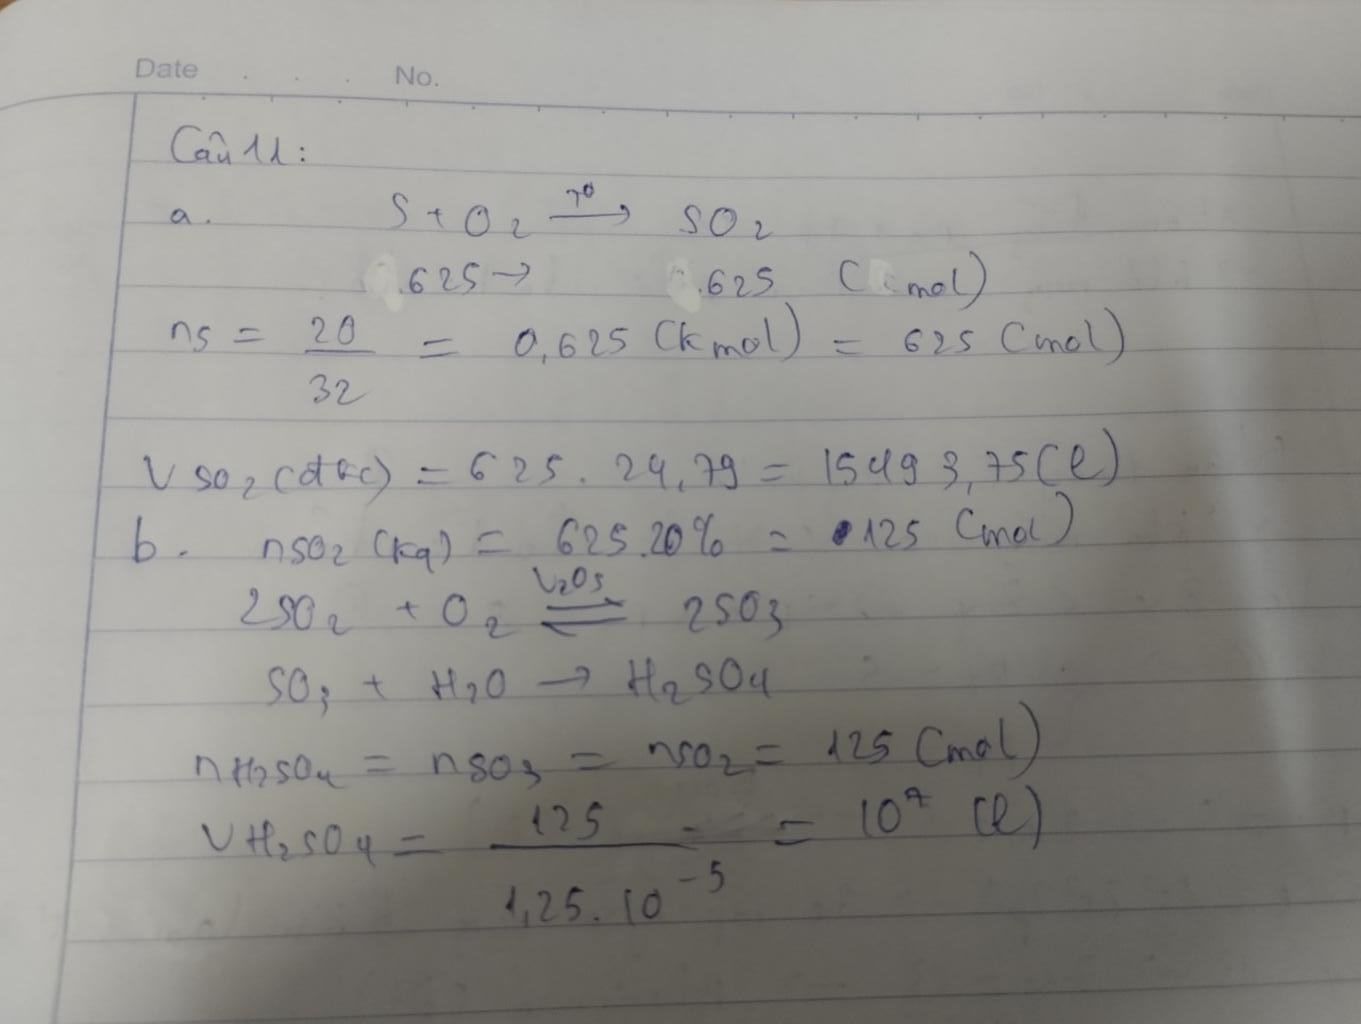 Date . . . No.
Câu 11:
a. S + O2 →(t⁰) SO2
625 → 625 (mol)
nS = 20/32 = 0,625 (kmol) = 625 (mol)
V SO2 (đkc) = 625 . 24,79 = 15493,75 (l)
b. nSO2 (kq) = 625.20% = 125 (mol)
2SO2 + O2 ⇌(V2O5) 2SO3
SO3 + H2O → H2SO4
nH2SO4 = nSO3 = nSO2 = 125 (mol)
VH2SO4 = 125/1,25.10⁻⁵ = 10⁷ (l)